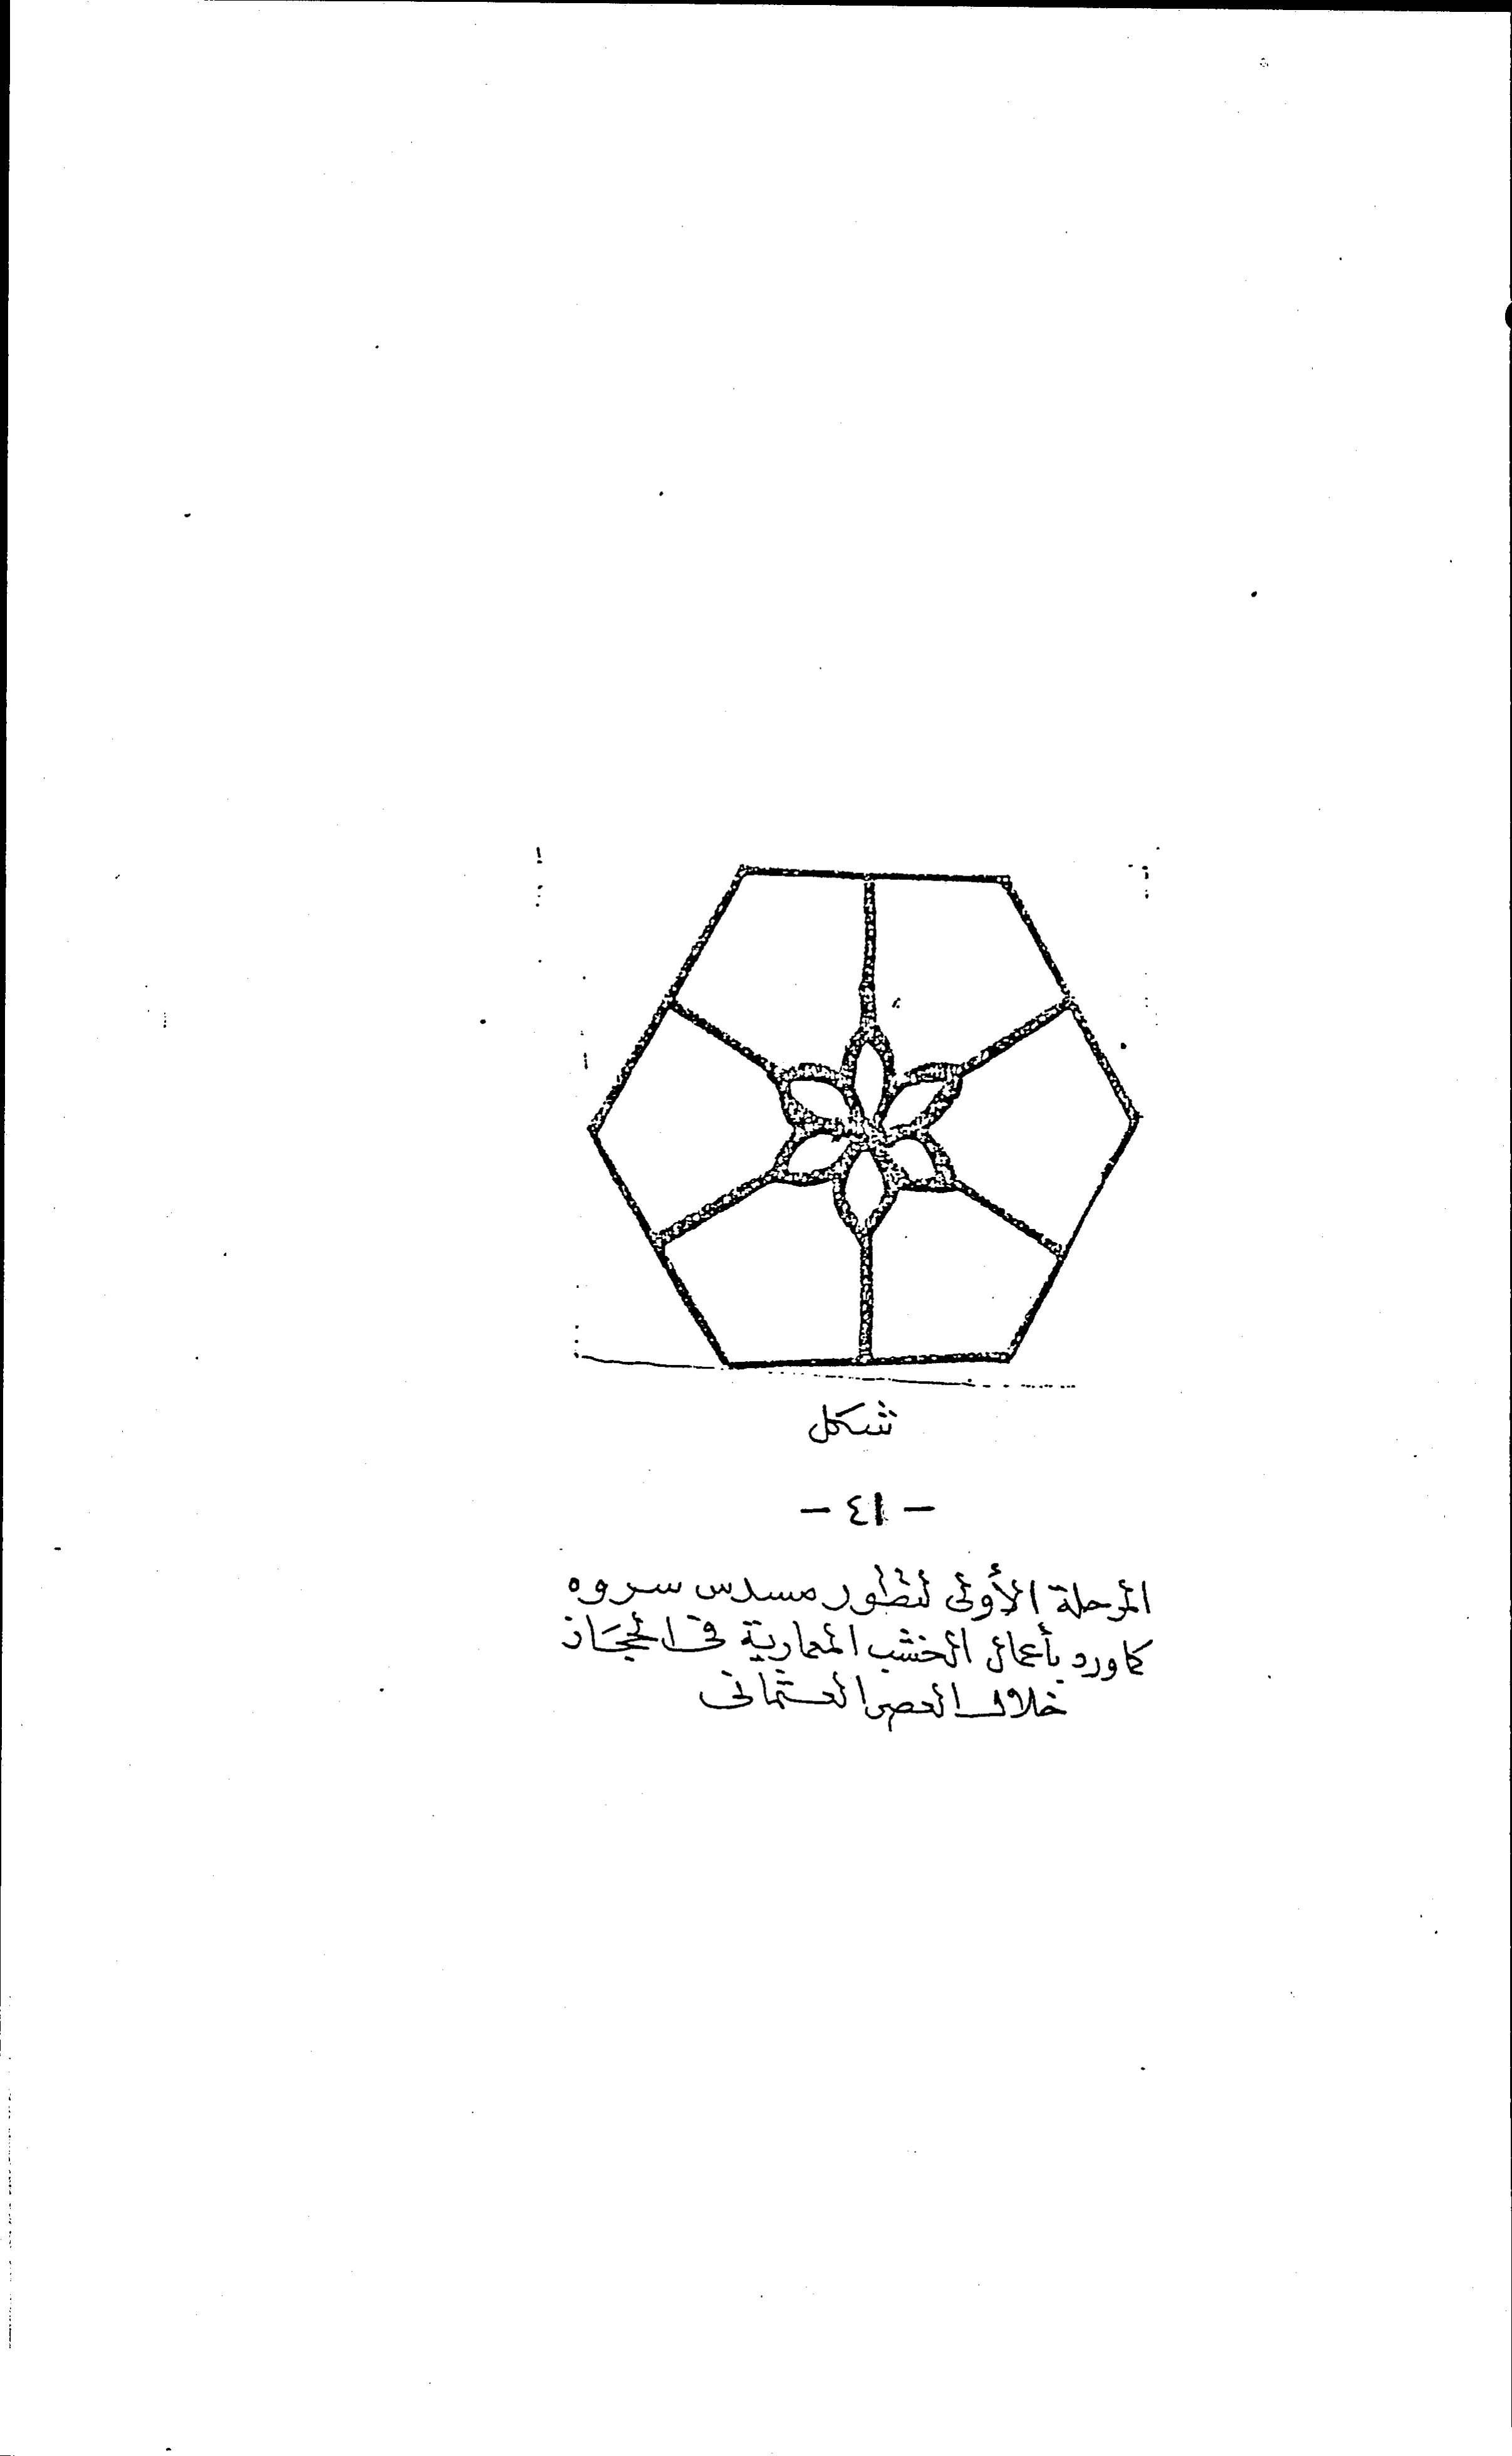 شكل
- ٤١ -
المرحلة الأولى لتطور مسدس سروه
كما ورد بأعمال الخشب المعمارية فى الحجاز
خلال العصر العثمانى